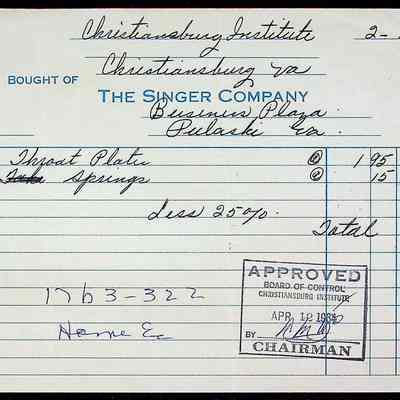 Christiansburg Institute 2-
Christiansburg Va
BOUGHT OF
THE SINGER COMPANY
Business Plaza
Pulaski Va.
Throat Plates @ 1 95
Springs @ 15
Less 25%
Total
APPROVED
BOARD OF CONTROL
CHRISTIANSBURG INSTITUTE
1763-322
APR 12
Home Ec
BY
CHAIRMAN